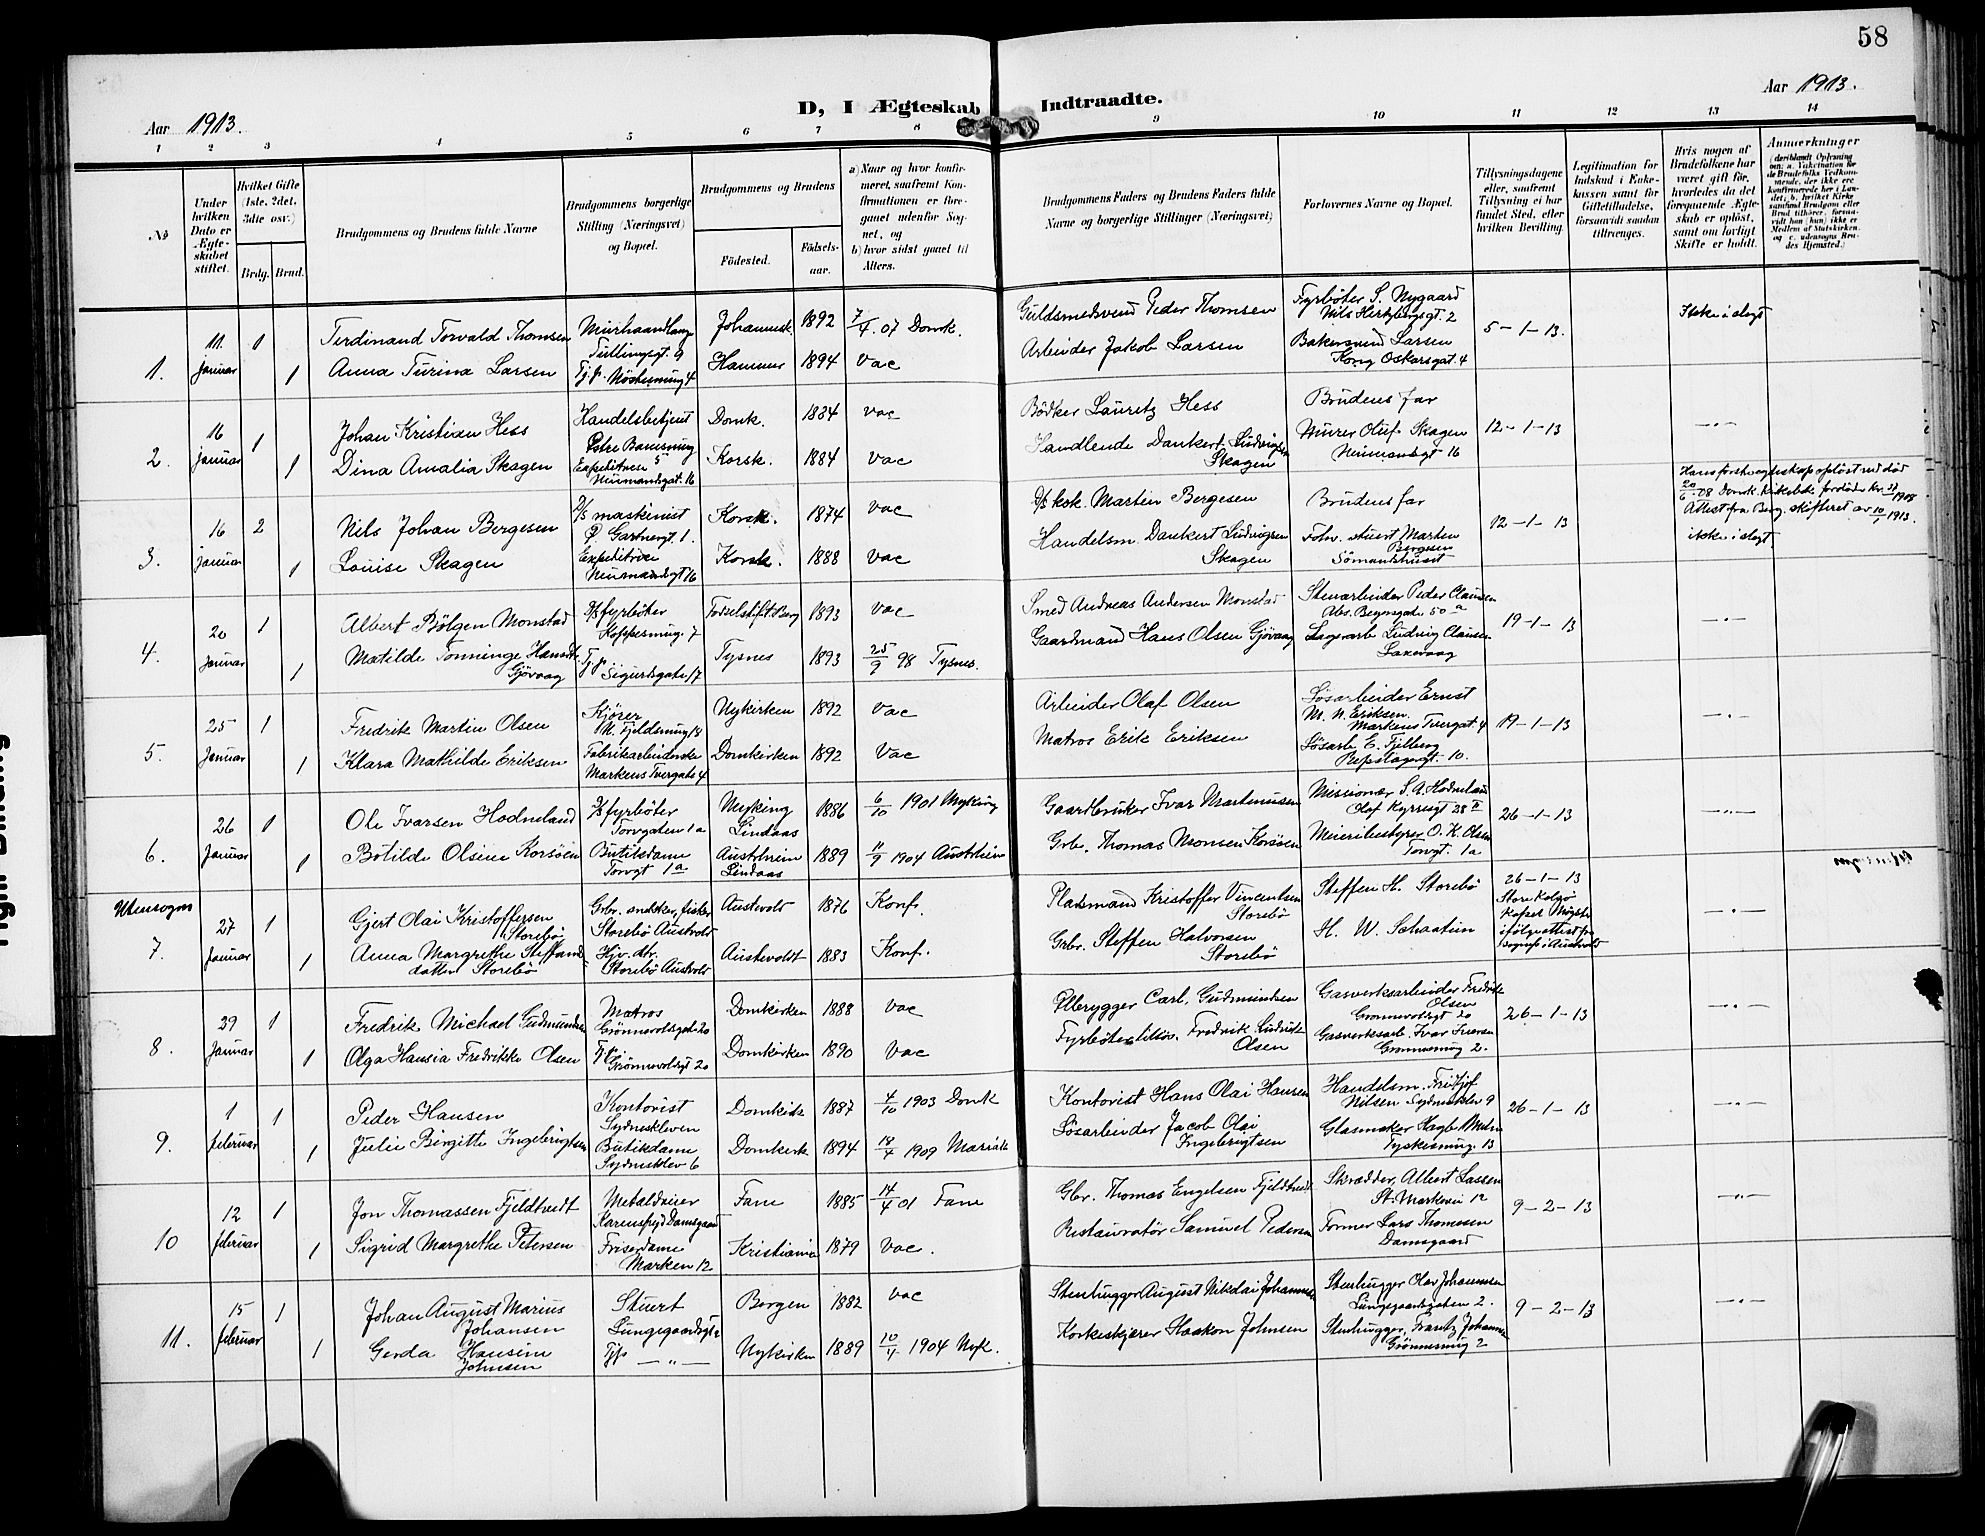 58
Aar 1913.
D, I Ægteskab Indtraadte.
Aar 1913.
1 2 3 4 5 6 7 8 9 10 11 12 13 14
No
Under hvilken Dato er Ægteskabet stiftet.
Hvilket Gifte (1ste, 2det, 3die osv.)
Brdg. Brud.
Brudgommens og Brudens fulde Navne
Brudgommens borgerlige Stilling (Næringsvei) og Bopæl.
Brudgommens og Brudens
Födested. Födsels-aar.
a) Naar og hvor konfirmeret, saafremt Konfirmationen er foregaaet udenfor Sognet, og
b) hvor sidst gaaet til Alters.
Brudgommens Faders og Brudens Faders fulde Navne og borgerlige Stillinger (Næringsvei)
Forlovernes Navne og Bopæl.
Tillysningsdagene eller, saafremt Tillysning ei har fundet Sted, efter hvilken Bevilling.
Legitimation for Indskud i Enkekassen samt for Giftetilladelse, forsaavidt saadan tiltrænges.
Hvis nogen af Brudefolkene har været gift før, hvorledes da det foregaaende Ægteskab er opløst, samt om lovligt Skifte er holdt.
Anmerkninger
(deriblandt Oplysning om: a. Vakcination for de Brudefolks Vedkommende, der ikke ere konfirmerede her i Landet; b. hvilket Kirkesamfund Brudgom eller Brud tilhører, forsaavidt han (hun) ikke er Medlem af Statskirken, og c. udensogns Brudes Hjemsted.)
1. 11 Januar 1 Ferdinand Torvald Thomsen Murhaandlang. Tullingsgt. 9 Johannesk. 1892 7/4 07 Domk. Guldsmedsvend Peder Thomsen Fyrbøter S. Nygaard Nils Hertzbergsgt. 2 5-1-13. Ikke i slegt
1 Anna Turina Larsen Tj.p. Nöstesmug 4 Hammer 1894 Vac Arbeider Jakob Larsen Bakersvend Larsen Kong Oskarsgat. 4
2. 16 Januar 1 Johan Kristian Hess Handelsbetjent Domk. 1884 Vac Bödker Lauritz Hess Brudens far 12-1-13 -"-
1 Dina Amalia Skagen Expeditrice Neumandsgat. 16 Korsk. 1884 Vac Handlende Dankert Ludvigsen Skagen Murer Oluf Skagen Neumandsgt 16
3. 16 Januar 2 Nils Johan Bergesen D/s maskinist Ø. Gartnergt. 1. Korsk. 1874 Vac D/s kok. Martin Bergesen Brudens far 12-1-13 Hans første egteskap opløst ved död 20/6-08 Domk. Kirkebok for døde 1908 Attest fra Berg. skifteret av 10/1 1913. ikke i slegt
1 Louise Skagen Expeditrice Neumandsgt 16 Korsk. 1888 Vac Handelsm. Dankert Ludvigsen Skagen Fhv. stuert Marten Bergesen Sömandshuset
4. 20 Januar 1 Albert Bölgen Monstad D/s fyrböter Koppersmug. 7 Fødselstift. Berg 1893 Vac Smed Andreas Andersen Monstad Stenarbeider Peder Clausen Abs. Beyersgate 50 a 19-1-13 -"-
1 Matilde Tonninge Hansdt. Gjövaag Tj.p. Sigurdsgate 17 Tysnes 1893 25/9 98 Tysnes. Gaardmand Hans Olsen Gjövaag Lagerarb. Ludvig Clausen Laksevaag
5. 25 Januar 1 Fredrik Martin Olsen Kjörer N. Fjeldsmug 18 Nykirken 1892 Vac Arbeider Olaf Olsen Løsarbeider Ernst M. N. Eriksen. Markens Tvergat. 4 19-1-13 -"-
1 Klara Mathilde Eriksen Fabrikarbeiderske Markens Tvergate 4 Domkirken 1892 Vac Matros Erik Eriksen Løsarb. E. Fjelberg Repslagergt. 10.
6. 26 Januar 1 Ole Ivarsen Hodneland D/s fyrböter Torvgaten 1a Myking Lindaas 1886 6/10 1901 Myking Gaardbruker Ivar Martinussen Missionær S. A. Hodneland Olaf Kyrresgt 28 II 26-1-13 -"-
1 Botilde Olsine Korsöen Butiksdame Torvgt 1a Austrheim Lindaas 1889 11/9 1904 Austrheim Grb. Thomas Monsen Korsöen Meieribestyrer O. K. Olsen Torvgt. 1a
Utensogns
7. 27 Januar 1 Gjert Olai Kristoffersen Storebö Grbr. andker, fisker Storebö Austvold Austevoldt 1876 Konf. Pladsmand Kristoffer Vincentsen Storebö Steffen H. Storebö 26-1-13 Store Kalsö Kapel Møgster ifølge attest fra sognepr. i Austvold -"-
1 Anna Margrethe Steffensdatter Storebö Hjv. dtr. Storebö Austvold Austevoldt 1883 Konf. Grbr. Steffen Halvorsen Storebö H. W. Schaatun
8. 29 Januar 1 Fredrik Michael Gudmundsen Matros Grönnevoldsgat. 20 Domkirken 1888 Vac Pllerygger Carl. Gudmundsen Gasverksarbeider Fredrik Olsen Grönnevoldsgt 20 26-1-13 -"-
1 Olga Hansia Fredrikke Olsen Tj.p. Grönnevoldsgt 20 Domkirken 1890 Vac Fyrböter Fredrik Ludvik Olsen Gasverksarb. Ivar Iversen Grönnesmug 2.
9. 1 februar 1 Peder Hansen Kontorist Sydneskleven Domkirk 1887 4/10 1903 Domk Kontorist Hans Olai Hansen Handelsm. Fritjof Nilsen Sydnesklev 9 26-1-13 -"-
1 Julie Birgitte Ingebrigtsen Butikdame Sydnesklev 6 Domkirk 1894 18/4 1909 Mariak Løsarbeider Jacob Olai Ingebrigtsen Glasmaker Hagb. Malm Tyskesmug. 13
10 12 februar 1 Jon Thomassen Fjeldtvedt Metaldreier Karensfryd Damsgaard Fane 1885 14/4 01 Fane Gbr. Thomas Engelsen Fjeldtvedt Skrædder, Albert Lassen St. Markevei 12 9-2-13 -"-
1 Sigrid Margrethe Petersen Friserdame Marken 12 Kristiania 1879 Vac. Restauratör Samuel Pedersen Former Lars Thomesen Damsgaard
11. 15 februar 1 Johan August Marius Johansen Stuert Lungegaardsgt 2 Bergen 1882 Vac Stenhugger August Nikolai Johannesen Stenhugger Olav Johannesen Lungegaardsgaten 2. 9-2-13 -"-
1 Gerda Hansine Johnsen Tj.p. -"- Nykirken 1889 10/4 1904 Nyk. Korkeskjærer Haakon Johnsen Stenhugger, Frantz Johannes Grönnesmug 2